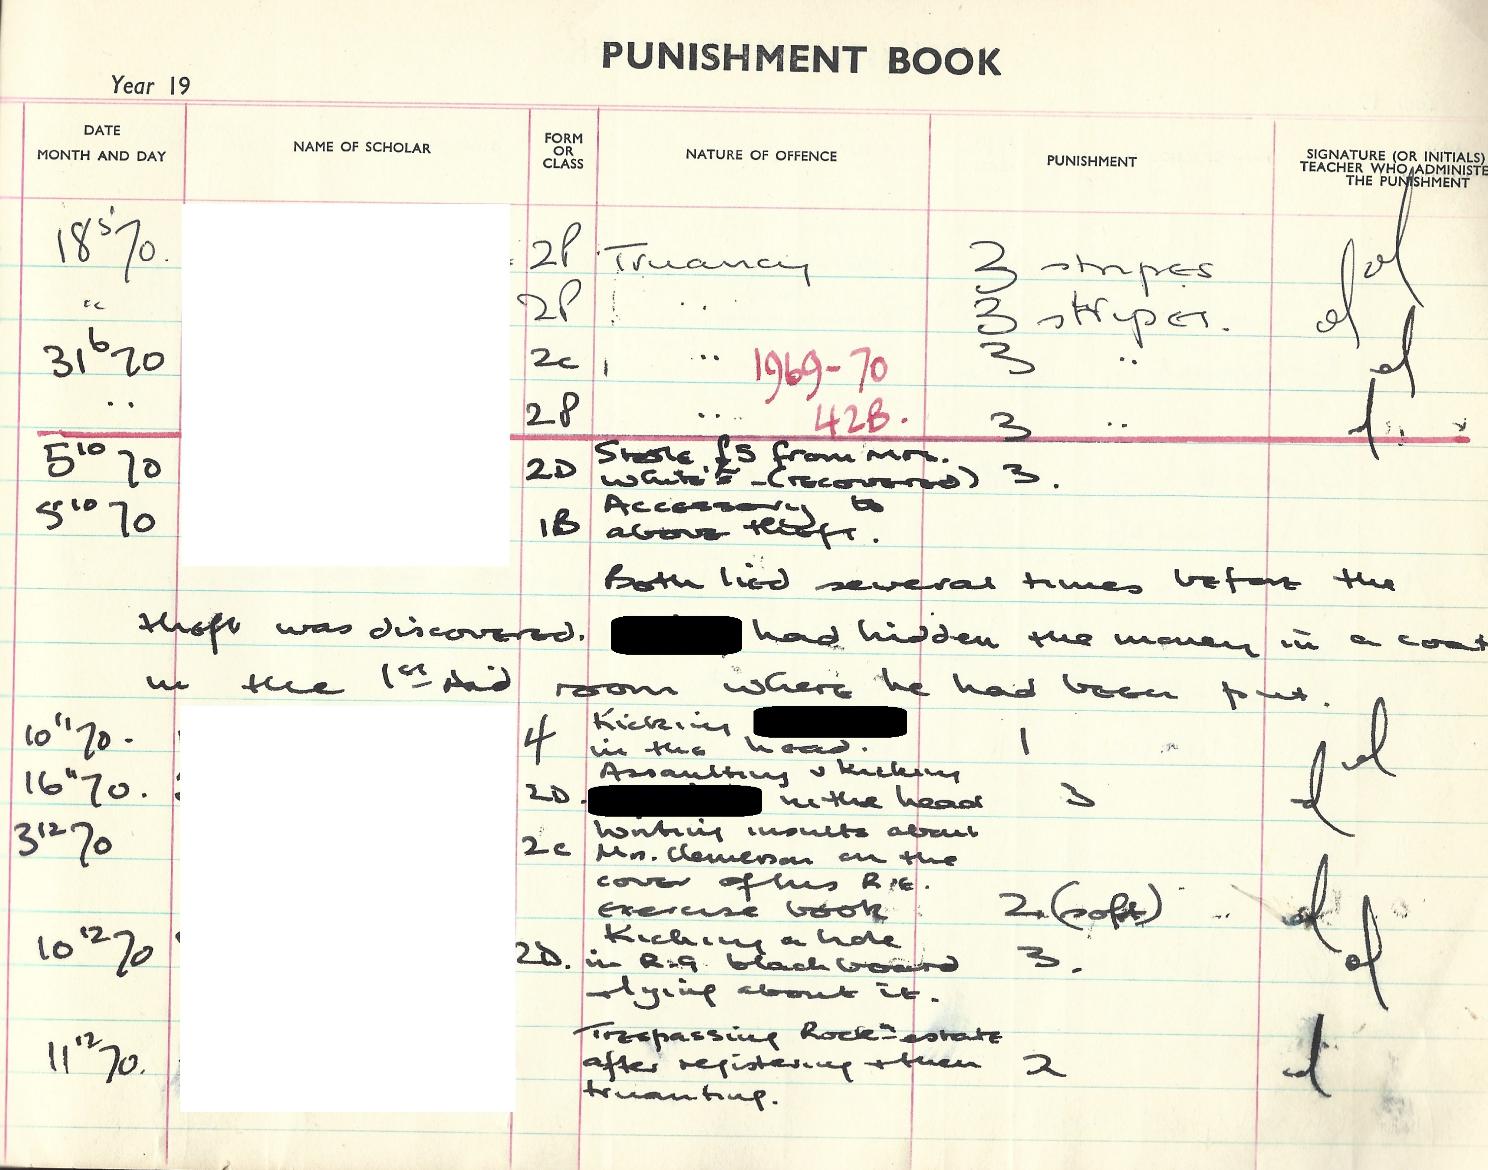 PUNISHMENT BOOK
Year 19
DATE
MONTH AND DAY
NAME OF SCHOLAR
FORM
OR
CLASS
NATURE OF OFFENCE
PUNISHMENT
SIGNATURE (OR INITIALS)
TEACHER WHO ADMINISTE
THE PUNISHMENT
18 5 70. 2P Truancy 3 stripes
" 2P " 3 stripes.
31 6 70 2c " 1969-70 3 "
" 2P " 42B. 3 "
5 10 70 2D Stole £5 from Mrs.
White's - (recovered) 3.
5 10 70 1B Accessory to
above theft.
Both lied several times before the
theft was discovered. had hidden the money in a coat
in the 1st Aid room where he had been put.
10 11 70. 4 Kicking
in the head. 1
16 11 70. 2D. Assaulting & kicking
in the head 3
3 12 70 2c Writing insults about
Mrs. Clemerson on the
cover of his R.E.
Exercise book 2 (soft)
10 12 70 2D. Kicking a hole
in R.9 blackboard 3.
& lying about it.
11 12 70. Trespassing Rock estate
after registering & then 2
truanting.